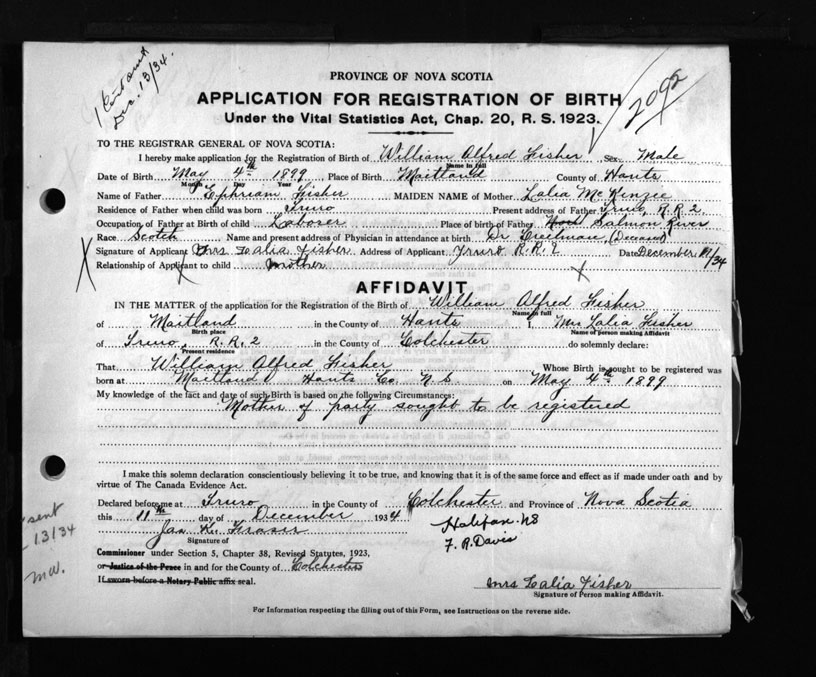 Dec. 13/34.
2092
PROVINCE OF NOVA SCOTIA
APPLICATION FOR REGISTRATION OF BIRTH
Under the Vital Statistics Act, Chap. 20, R. S. 1923.
TO THE REGISTRAR GENERAL OF NOVA SCOTIA:
I hereby make application for the Registration of Birth of William Alfred Fisher Sex Male
Name in full
Date of Birth May 4th 1899 Place of Birth Maitland County of Hants
Month Day Year
Name of Father Ephriam Fisher MAIDEN NAME of Mother Lalia McKenzie
Residence of Father when child was born Truro Present address of Father Truro, R.R.2
Occupation of Father at Birth of child Laborer Place of birth of Father Salmon River
Race Scotch Name and present address of Physician in attendance at birth Dr Creelman
Signature of Applicant Mrs Lalia Fisher Address of Applicant Truro R.R.2 Date December 11/34
Relationship of Applicant to child mother
AFFIDAVIT
IN THE MATTER of the application for the Registration of the Birth of William Alfred Fisher
Name in full
of Maitland in the County of Hants I, Mrs Lalia Fisher
Birth place Name of person making Affidavit
of Truro, R.R.2 in the County of Colchester do solemnly declare:
Present residence
That William Alfred Fisher Whose Birth is sought to be registered was
born at Maitland Hants Co. N.S on May 4th 1899
My knowledge of the fact and date of such Birth is based on the following Circumstances:
Mother of party sought to be registered
I make this solemn declaration conscientiously believing it to be true, and knowing that it is of the same force and effect as if made under oath and by
virtue of The Canada Evidence Act.
Declared before me at Truro in the County of Colchester and Province of Nova Scotia
this 11th day of December 1934
Halifax NS
Jas. K. Fraser
F. R. Davis
Signature of
Commissioner under Section 5, Chapter 38, Revised Statutes, 1923,
or Justice of the Peace in and for the County of Colchester
If sworn before a Notary Public affix seal.
Mrs Lalia Fisher
Signature of Person making Affidavit.
For Information respecting the filling out of this Form, see Instructions on the reverse side.
sent
13/34
MW.